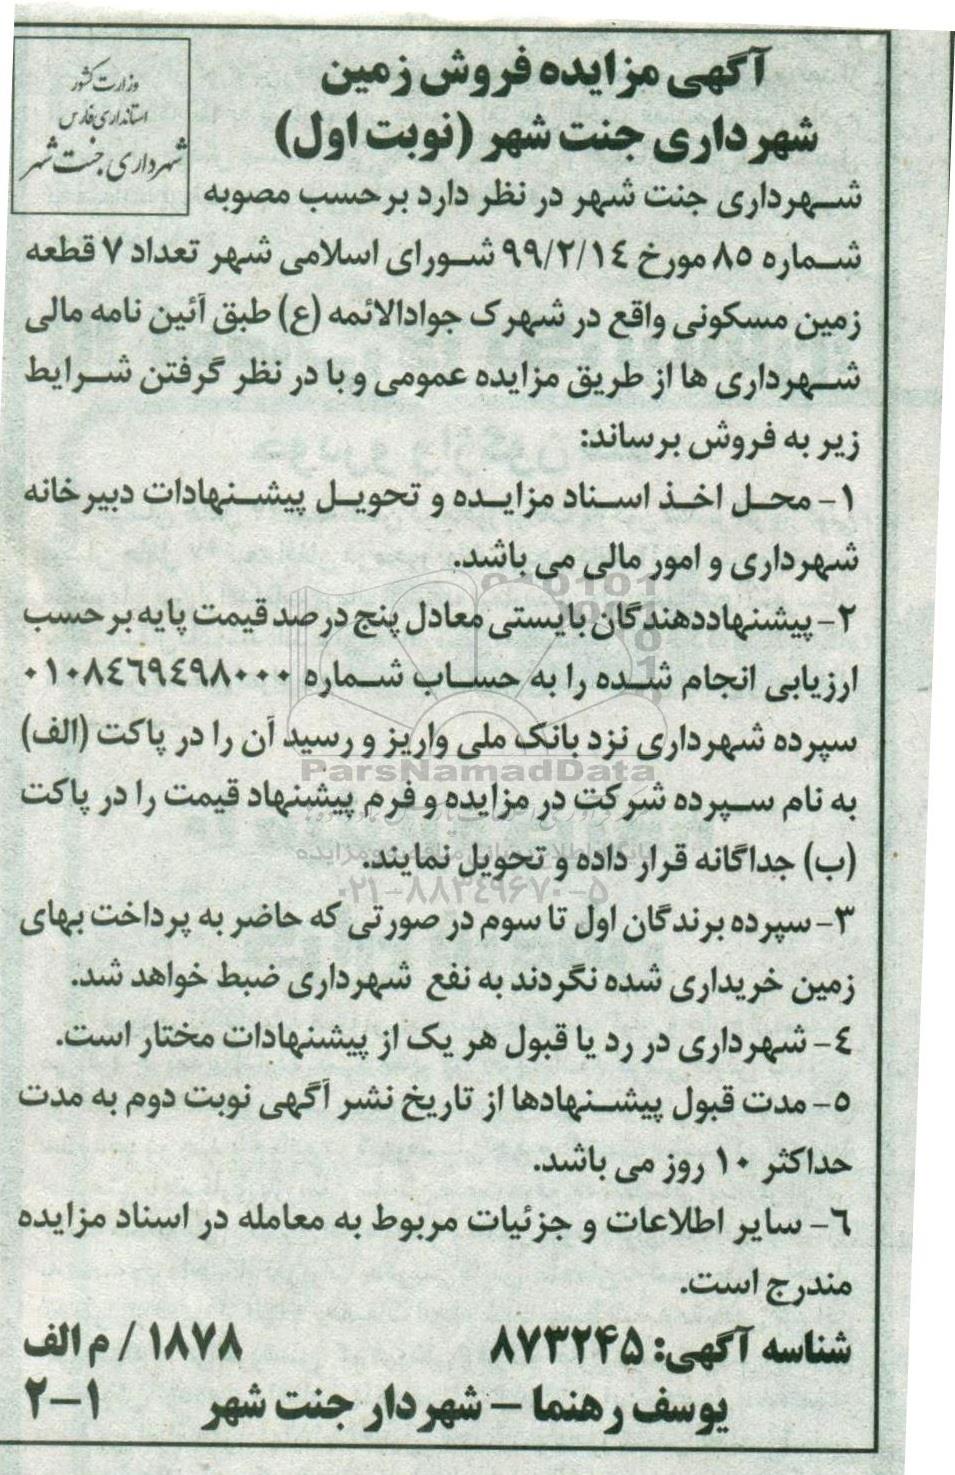 آگهی مزایده فروش زمین
شهرداری جنت شهر (نوبت اول)
وزارت کشور
استانداری فارس
شهرداری جنت شهر
شهرداری جنت شهر در نظر دارد برحسب مصوبه
شماره ۸۵ مورخ ۹۹/۲/۱۴ شورای اسلامی شهر تعداد ۷ قطعه
زمین مسکونی واقع در شهرک جوادالائمه (ع) طبق آئین نامه مالی
شهرداری ها از طریق مزایده عمومی و با در نظر گرفتن شرایط
زیر به فروش برساند:
۱- محل اخذ اسناد مزایده و تحویل پیشنهادات دبیرخانه
شهرداری و امور مالی می باشد.
۲- پیشنهاددهندگان بایستی معادل پنج درصد قیمت پایه برحسب
ارزیابی انجام شده را به حساب شماره ۰۱۰۸۴۶۹۴۹۸۰۰۰
سپرده شهرداری نزد بانک ملی واریز و رسید آن را در پاکت (الف)
ParsNamadData
به نام سپرده شرکت در مزایده و فرم پیشنهاد قیمت را در پاکت
(ب) جداگانه قرار داده و تحویل نمایند.
۰۲۱-۸۸۳۴۹۶۷۰-۵
۳- سپرده برندگان اول تا سوم در صورتی که حاضر به پرداخت بهای
زمین خریداری شده نگردند به نفع شهرداری ضبط خواهد شد.
۴- شهرداری در رد یا قبول هر یک از پیشنهادات مختار است.
۵- مدت قبول پیشنهادها از تاریخ نشر آگهی نوبت دوم به مدت
حداکثر ۱۰ روز می باشد.
۶- سایر اطلاعات و جزئیات مربوط به معامله در اسناد مزایده
مندرج است.
شناسه آگهی: ۸۷۳۲۴۵ ۱۸۷۸ / م الف
یوسف رهنما - شهردار جنت شهر ۱-۲